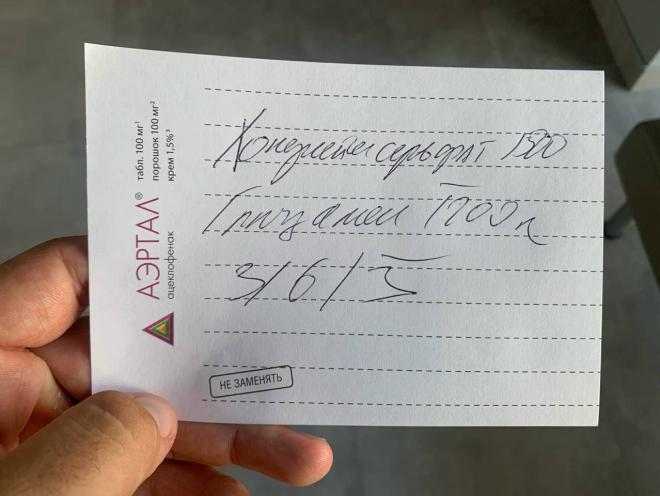 АЭРТАЛ®
ацеклофенак
табл. 100 мг¹
порошок 100 мг²
крем 1,5%³
Хондроитинсульфат 1500
3/6/3
НЕ ЗАМЕНЯТЬ